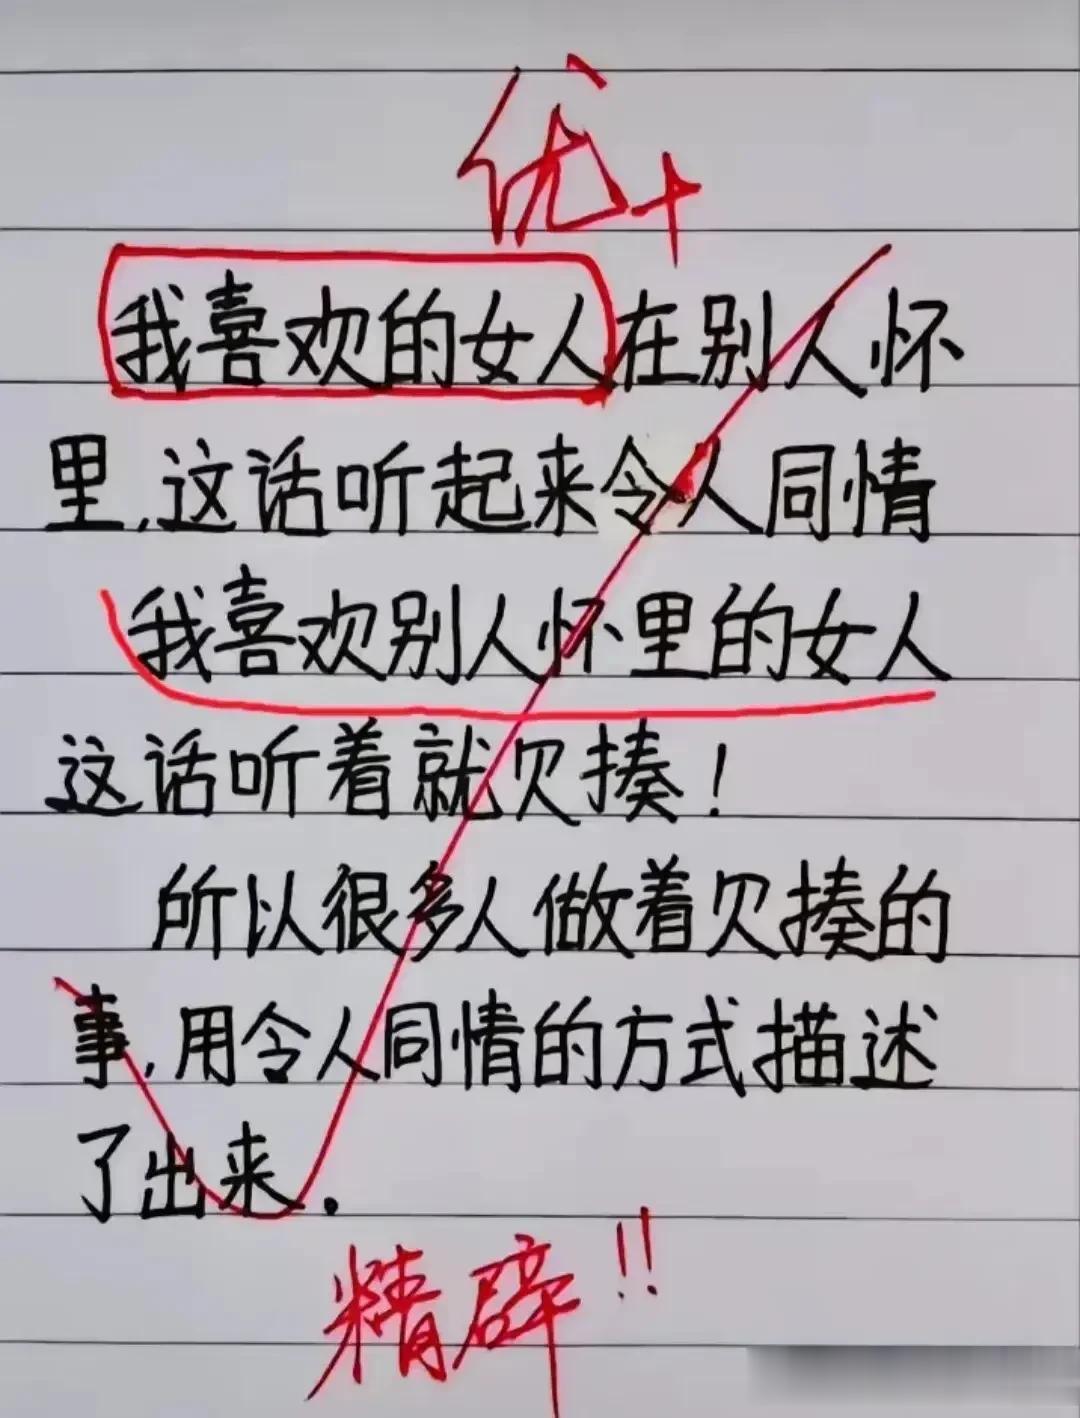 优+
我喜欢的女人在别人怀
里,这话听起来令人同情
我喜欢别人怀里的女人
这话听着就欠揍!
所以很多人做着欠揍的
事,用令人同情的方式描述
了出来.
精辟!!